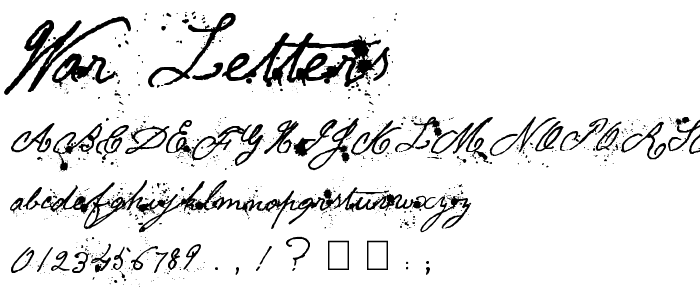 War Letters
ABCDEFGHIJKLMNOPQRS
abcdefghijklmnopqrstuvwxyz
0123456789 . , ! ? □ □ : ;